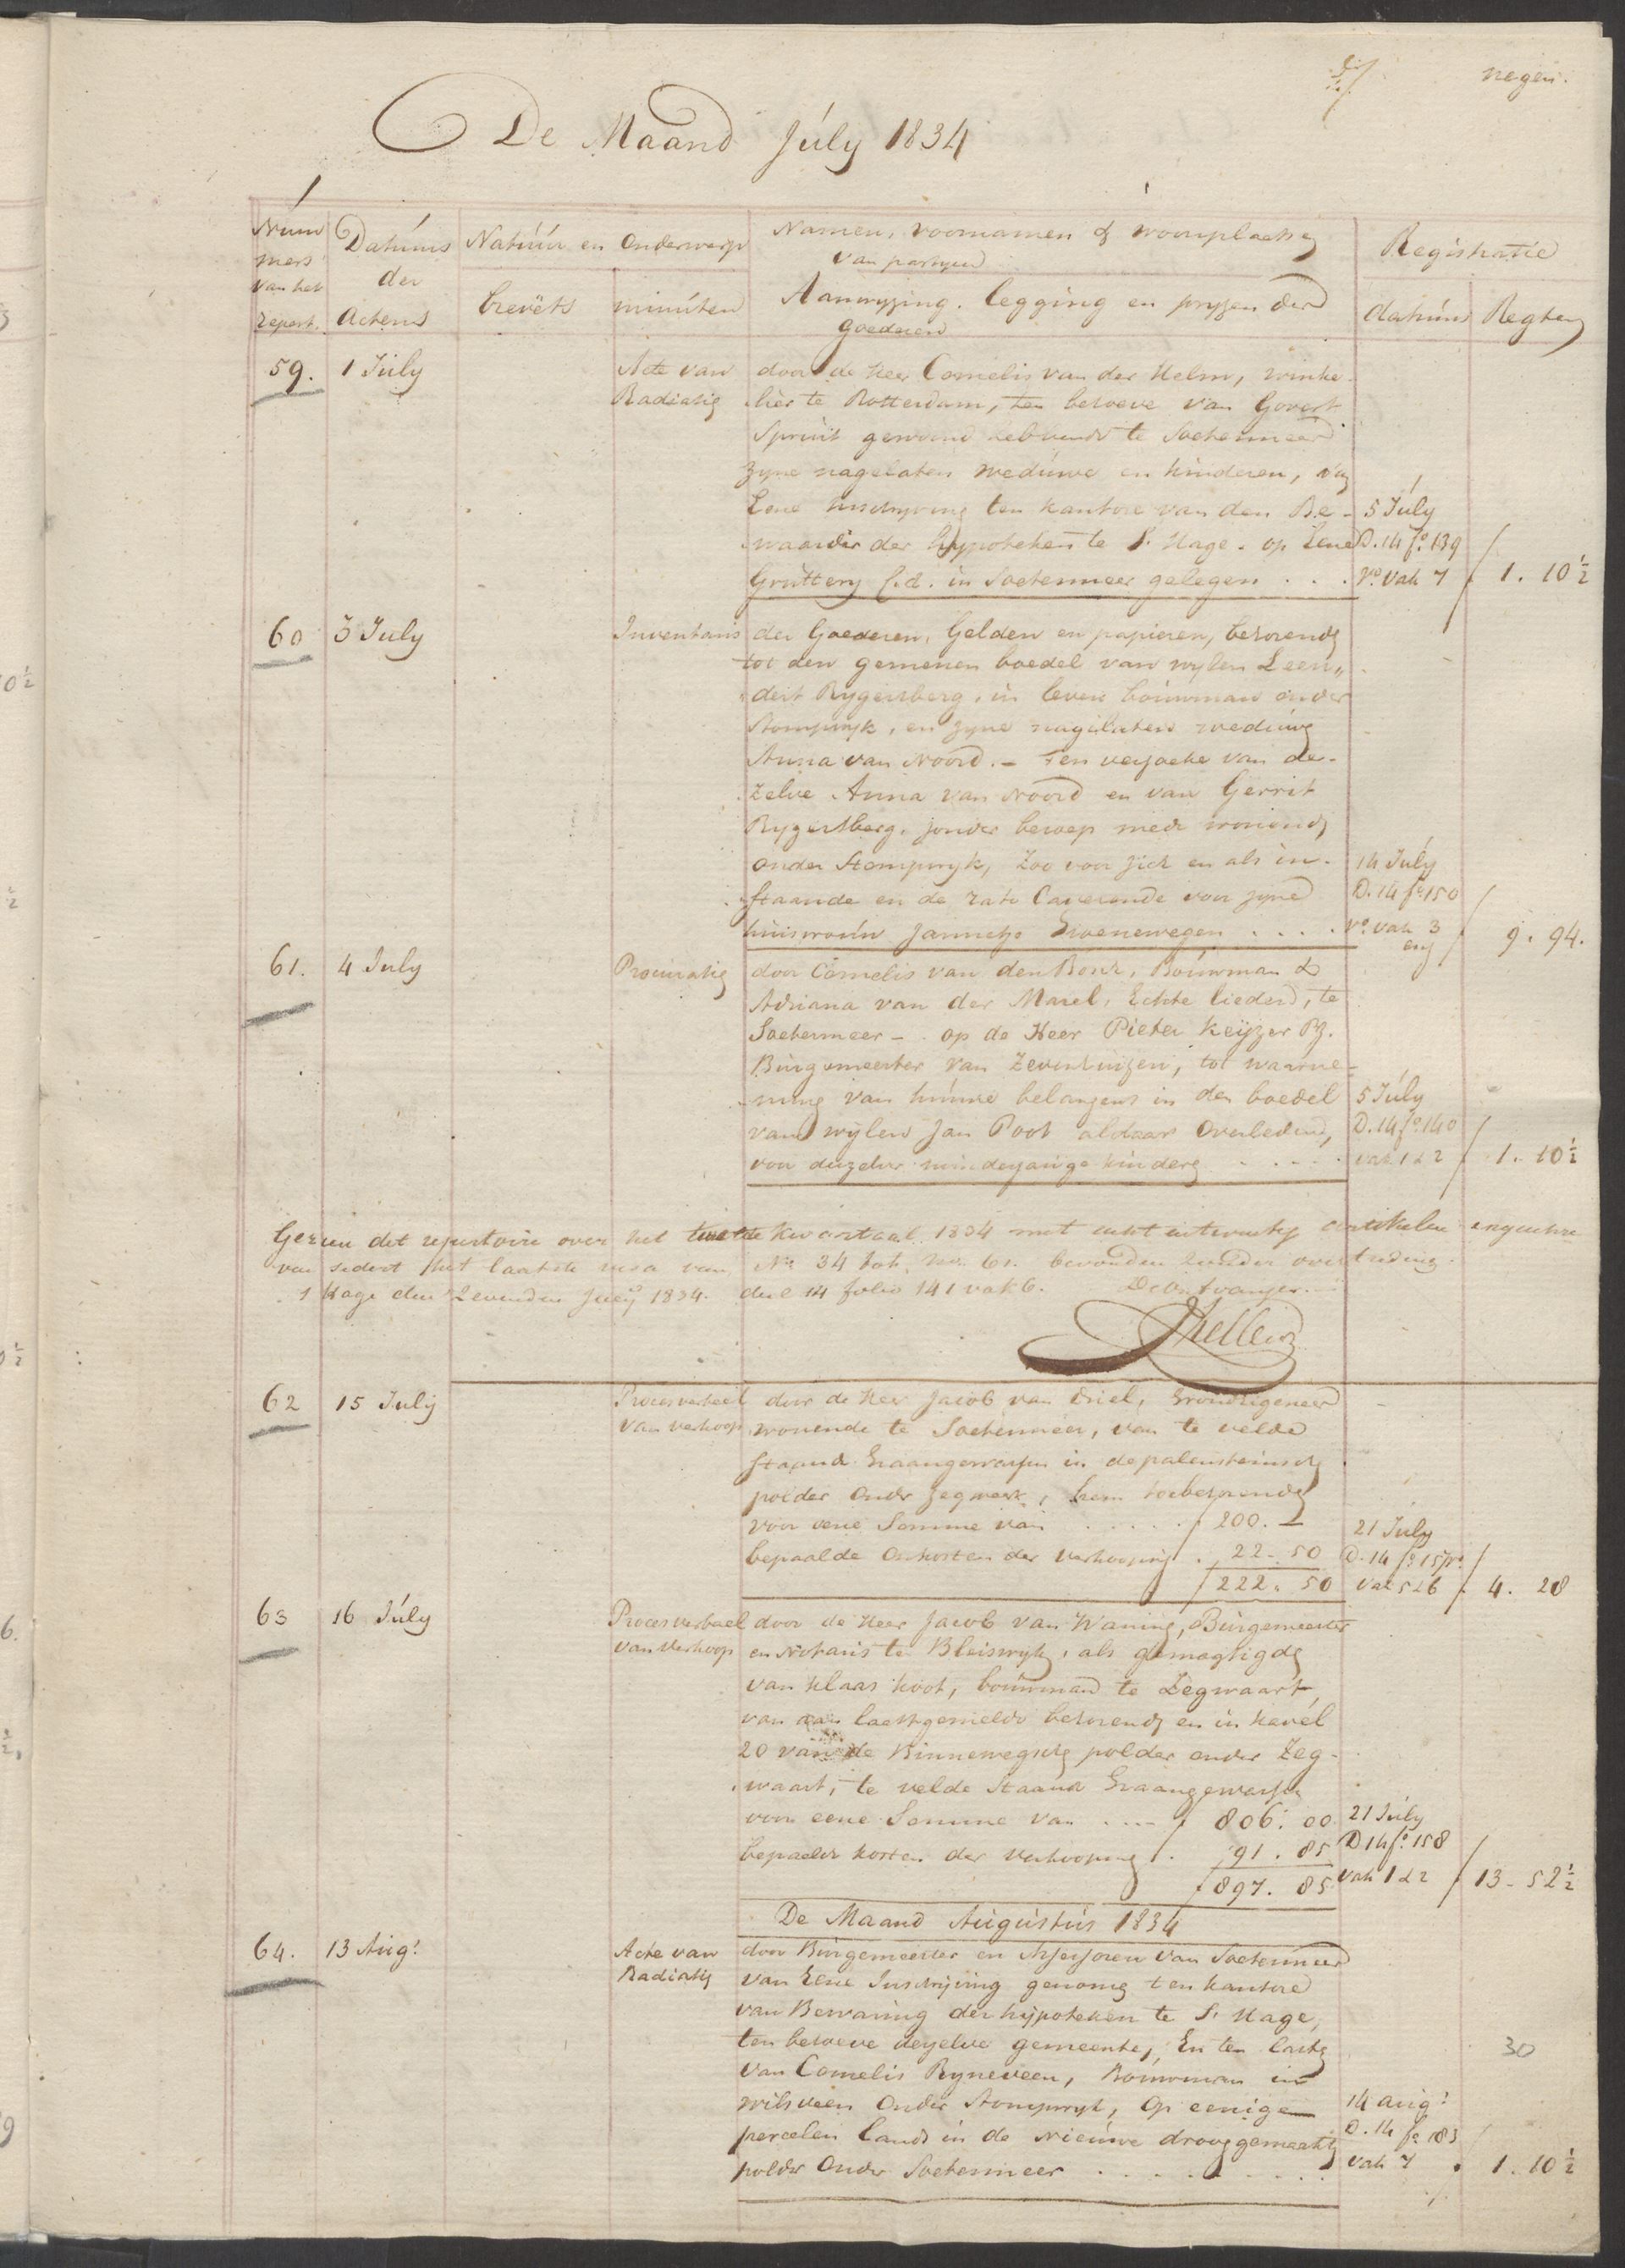 negen.
De Maand July 1834
Num
mers
van het
repert.
Datums
der
Actens
Natuur en Onderwerp
brevets
minuten
Namen, voornamen & woonplaats
van partyen
Aanwyzing, legging en pryzen der
goederen
Registratie
datums
Regten
59.
1 July
Acte van
Radiatie
door de Heer Cornelis van der Helm, winke-
lier te Rotterdam, ten behoeve van Govert
Spruit gewoond hebbende te Soetermeer
zyne nagelaten weduwe en kinderen, van
Eene Inschryving ten kantore van den Be-
waarder der hypotheken te S. Hage. op Eene
Gruttery &.d. in Soetermeer gelegen . . .
5 July
D. 14 fo. 139
Vo. Vak 7
1. 10 ½
60
3 July
Inventaris
der Goederen, Gelden en papieren, behorende
tot den gemenen boedel van wylen Leen„
dert Rygersberg, in leven bouwman onder
Stompwyk, en zyne nagelaten weduwe
Anna van Noord. – Ten verzoeke van de-
zelve Anna van Noord en van Gerrit
Rygersberg, zonder beroep mede wonende
onder Stompwyk, Zoo voor zich en als in-
staande en de rato Caverende voor zyne
huisvrouw Jannetje Groenewegen . . . .
14 July
D. 14 fo. 150
Vo. vak 3
9. 94.
61.
4 July
Procuratie
door Cornelis van den Bosch, Bouwman &
Adriana van der Marel, Echte lieden, te
Soetermeer – . op de Heer Pieter Keyzer Pz.
Burgemeester van Zevenhuizen, tot waarne-
ming van hunne belangens in den boedel
van wylen Jan Poot aldaar Overleden,
voor deszelvs minderjarige kinderen . . . . .
5 July
D. 14 fo. 140
vak 1 & 2
1. 10 ½
Gezien dit repertoire over het kwartaal 1834 met acht en twintig artikelen ingeschre
ven sedert het laatste visa van No. 34 tot no. 61. bevonden zonder overtreding.
S Hage den Zevenden July 1834. deel 14 folio 141 vak 6. De Ontvanger
62
15 July
Procesverbaal
van verkoop
door de Heer Jacob van Driel, Grondeigenaar
wonende te Soetermeer, van te velde
staand Graangewassen in de palensteinsche
polder onder Zegwaart, hem toebehorende
voor eene Somme van . . . . . f 200. –
bepaalde Onkosten der verkooping . 22. 50
f 222. 50
21 July
D. 14 fo. 157 vo.
vak 5 & 6
4. 28
63
16 July
Procesverbaal
van verkoop
door de Heer Jacob van Waning, Burgemeester
en Notaris te Bleiswyk, als gemagtigde
van Klaas Koot, bouwman te Zegwaart,
van aan laastgemelde behorende en in kavel
20 van de Binnewegsche polder onder Zeg-
waart, te velde Staand Graangewassen
voor eene Somme van . . . . f 806. 00
bepaalde kosten der verkooping . 91. 85
f 897. 85
21 July
D 14 fo. 158
vak 1 & 2
13 – 52 ½
De Maand Augustus 1834
64.
13 Aug:
Acte van
Radiatie
door Burgemeester en Assessoren van Soetermeer
van Eene Inschryving genomen ten kantore
van Bewaring der hypotheken te S. Hage,
ten behoeve derzelve gemeente, En ten laste
van Cornelis Ryneveen, Bouwman in
wilsveen Onder Stompwyk, Op eenige
percelen lands in de Nieuwe drooggemaakte
polder Onder Soetermeer . . . . . . . .
30
14 aug:
D. 14 fo. 183
vak 7
1. 10 ½